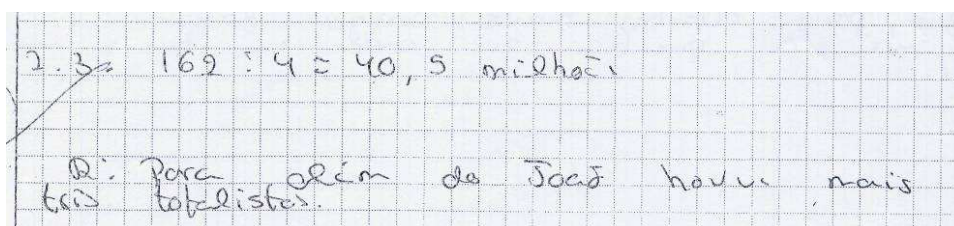 2.3- 162 : 4 = 40,5 milhões
R: Para além do João houve mais
três totalistas.